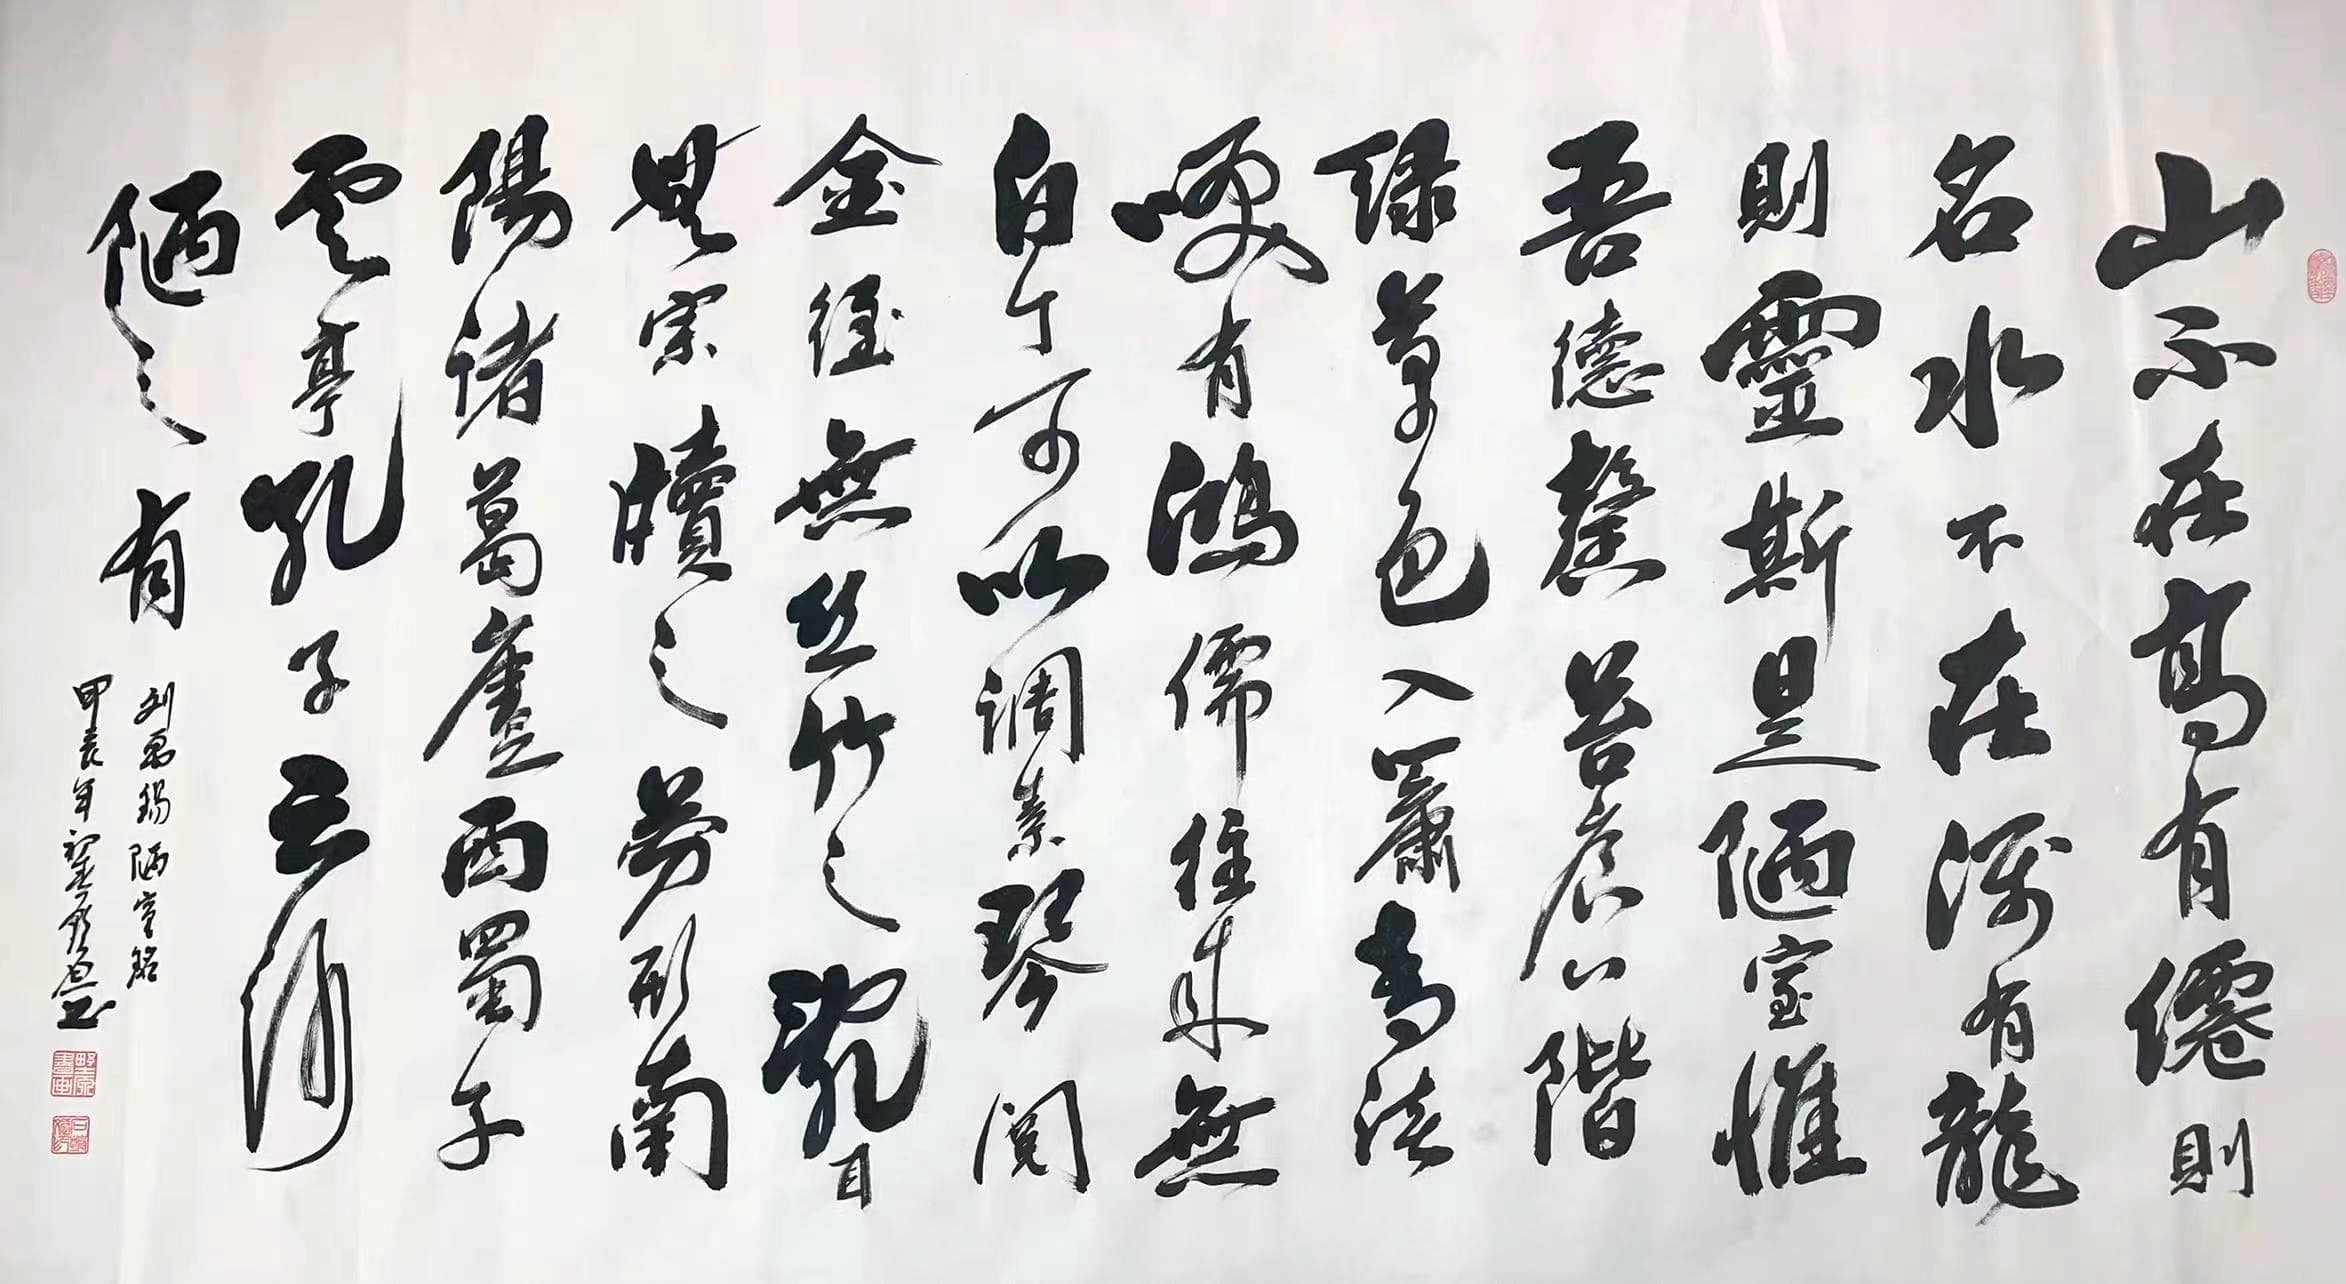 山不在高有僊則
名水不在深有龍
則靈斯是陋室惟
吾德馨苔痕上階
緑草色入簾青談
咲有鴻儒往來無
白丁可以調素琴閱
金經無丝竹之亂耳
無案牘之勞形南
陽諸葛廬西蜀子
雲亭孔子云何
陋之有
刘禹錫陋室銘
甲辰年